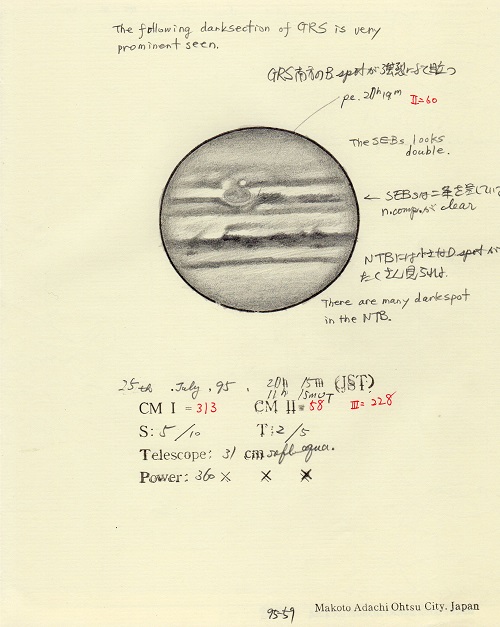 The following darksection of GRS is very
prominent seen.
GRS南方のB spotが強烈によく目立つ
pe. 20h19m II=60
The SEBs looks
double.
← SEBsは二条を呈していて
n. comp.が clear
NTBには小さなD spotが
たくさん見られた
There are many darkspot
in the NTB.
25th . July . 95 . 20h 15m (JST)
11h 15m UT
CM I = 313 CM II = 58 III = 228
S: 5/10 T: 2/5
Telescope: 31 cm refl.
Power: 360 × × ×
95-59 Makoto Adachi Ohtsu City, Japan